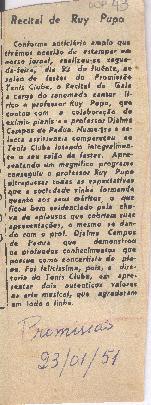 43
Recital de Ruy Pupo
Conforme noticiário amplo que
tivemos ocasião de estampar em
nosso jornal, realizou-se segun-
da-feira, dia 22 do fluente, no
salão de festas do Promissão
Tenis Clube, o Recital de Gala
a cargo do renomado cantor lí-
rico a professor Ruy Pupo, que
contou com a colaboração do
exímio pianista e professor Djalma
Campos de Padua. Numerosa e
seleta assistencia compareceu ao
Tenis Clube lotando integralmen-
te o seu salão de festas. Apre-
sentando um magnífico programa
conseguiu o professor Ruy Pupo
ultrapassar todas as espectativas
que a sociedade vinha formando
quanto aos seus méritos, o que
ficou bem evidenciado pela chu-
va de aplausos que cobriam suas
apresentações, o mesmo se dan-
do com o prof. Djalma Campos
de Padua que demonstrou
os profundos conhecimentos que
possue como concertista de pla-
no. Foi felicíssima, pois, a dire-
toria do Tenis Clube, em apre-
sentar dois autenticos valores
da arte musical, que agradaram
em toda a linha.
Promissão
23/01/51